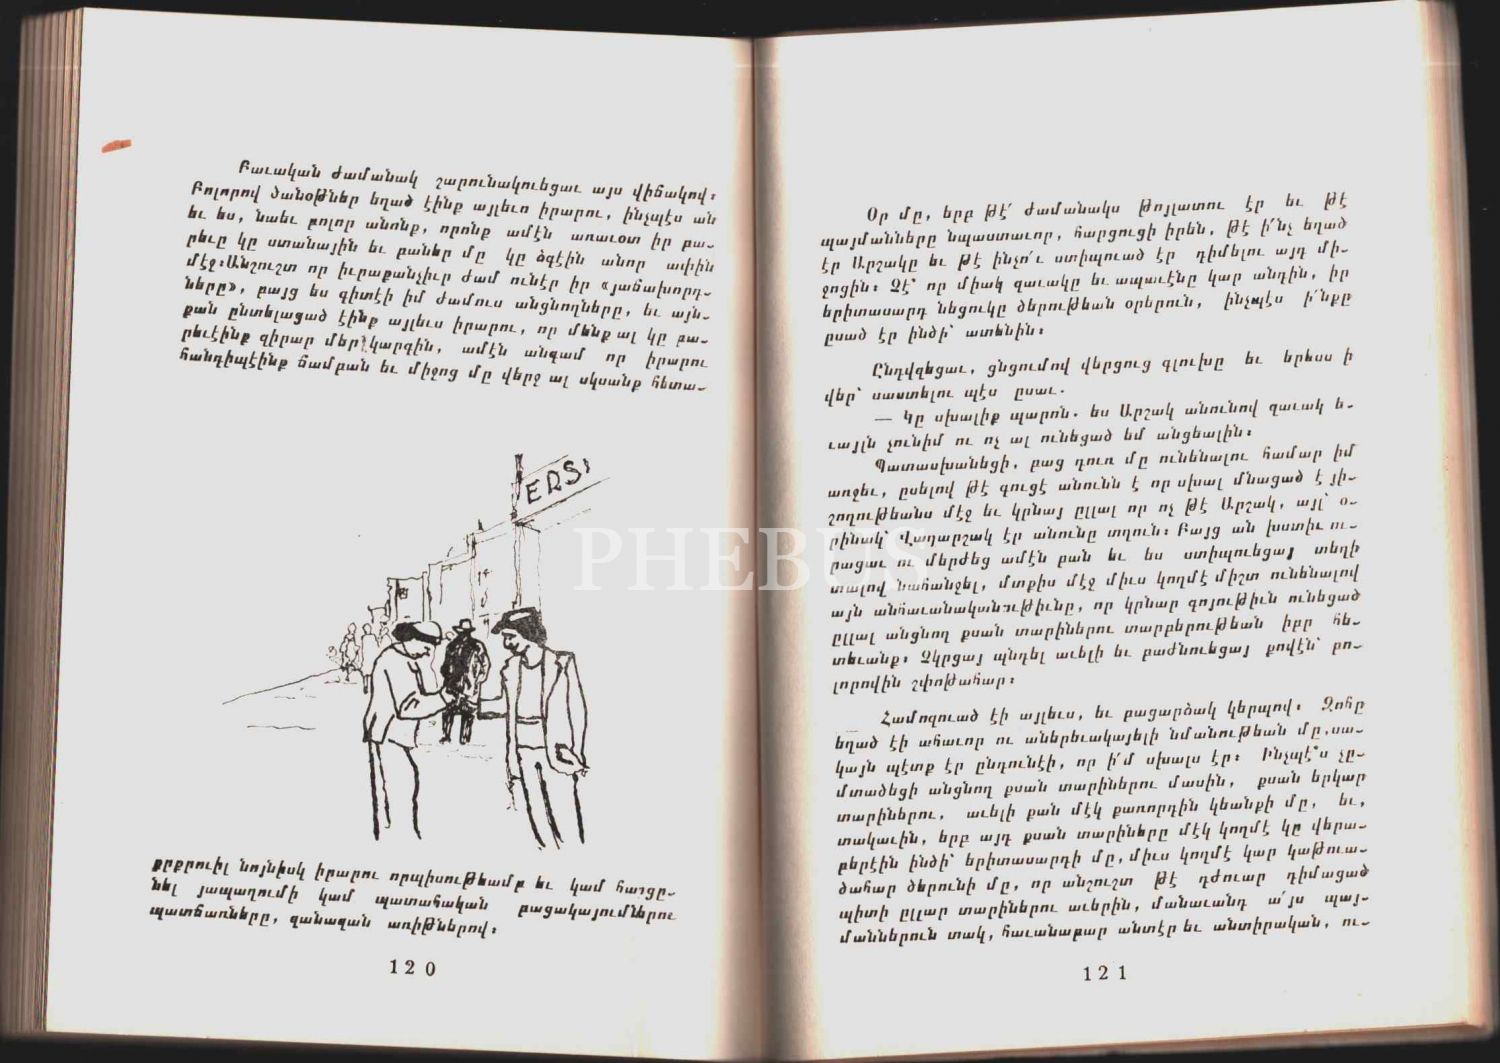 Բաւական ժամանակ շարունակուեցաւ այս վիճակով։
Բոլորով ծանօթներ եղած էինք այլեւս իրարու, ինչպէս ան
եւ ես, նաեւ բոլոր անոնք, որոնք ամէն առաւօտ իր բա-
րեւը կը ստանային եւ բաներ մը կը ձգէին անոր ափին
մէջ։Անշուշտ որ իւրաքանչիւր ժամ ունէր իր «յաճախորդ-
ները», բայց ես գիտէի իմ ժամուս անցնողները, եւ այն-
քան ընտելացած էինք այլեւս իրարու, որ մենք ալ կը բա-
րեւէինք զիրար մեր կարգին, ամէն անգամ որ իրարու
հանդիպէինք ճամբան եւ միջոց մը վերջ ալ սկսանք հետա-
ERS
քրքրուիլ նոյնիսկ իրարու որպիսութեամբ եւ կամ հարցը-
նել յապաղումի կամ պատահական բացակայումներու
պատճառները, զանազան առիթներով։
120
Օր մը, երբ թէ՛ ժամանակս թոյլատու էր եւ թէ
պայմանները նպաստաւոր, հարցուցի իրեն, թէ ի՛նչ եղած
էր Արշակը եւ թէ ինչո՛ւ ստիպուած էր դիմելու այդ մի-
ջոցին։ Չէ՞ որ միակ զաւակը եւ ապաւէնը կար անդին, իր
երիտասարդ նեցուկը ծերութեան օրերուն, ինչպէս ի՛նքը
ըսած էր ինծի՝ ատենին։
Ընդվզեցաւ, ցնցումով վերցուց գլուխը եւ երեսս ի
վեր՝ սաստելու պէս ըսաւ.
— Կը սխալիք պարոն. ես Արշակ անունով զաւակ ե-
ւայլն չունիմ ու ոչ ալ ունեցած եմ անցեալին։
Պատասխանեցի, բաց դուռ մը ունենալու համար իմ
առջեւ, ըսելով թէ գուցէ անունն է որ սխալ մնացած է յի-
շողութեանս մէջ եւ կրնայ ըլլալ որ ոչ թէ Արշակ, այլ՝ օ-
րինակ՝ Վաղարշակ էր անունը տղուն։ Բայց ան խստիւ ու-
րացաւ ու մերժեց ամէն բան եւ ես ստիպուեցայ տեղի
տալով նահանջել, մտքիս մէջ միւս կողմէ միշտ ունենալով
այն անհաւանականութիւնը, որ կրնար գոյութիւն ունեցած
ըլլալ անցնող քսան տարիներու տարբերութեան իբր հե-
տեւանք։ Չկրցայ պնդել աւելի եւ բաժնուեցայ քովէն՝ բո-
լորովին շփոթահար։
Համոզուած էի այլեւս, եւ բացարձակ կերպով։ Զոհը
եղած էի ահաւոր ու աներեւակայելի նմանութեան մը,սա-
կայն պէտք էր ընդունէի, որ ի՛մ սխալս էր։ Ինչպէ՞ս չը-
մտածեցի անցնող քսան տարիներու մասին, քսան երկար
տարիներու, աւելի քան մէկ քառորդին կեանքի մը, եւ,
տակաւին, երբ այդ քսան տարիները մէկ կողմէ կը վերա-
բերէին ինծի՝ երիտասարդի մը,միւս կողմէ կար կաթուա-
ծահար ծերունի մը, որ անշուշտ թէ դժուար դիմացած
պիտի ըլլար տարիներու աւերին, մանաւանդ ա՛յս պայ-
մաններուն տակ, հաւանաբար անտէր եւ անտիրական, ու-
121
PHEBUS